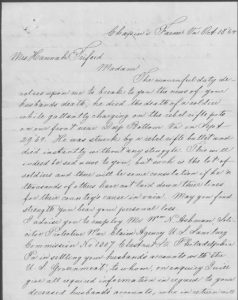 Chapin's Farm Va Oct 18th 64
Mrs Hannah
Madam
The mournful duty
devolves upon me to break to you the news of your
husbands death, he died the death of a soldier
while gallantly charging on the rebel rifle pits
on our front near Deep Bottom Va on Sept
29. 64. He was struck by a rebel rifle bullet and
died instantly without any struggle. This will
indeed be sad news to you, but such is the lot of
soldiers and there will be some consolation if he &
thousands of others have not laid down their lives
for their country's cause in vain. May you find
strength you bear your personal loss
I advise you to employ Mr Wm N. Soli-
citor Protective War Claim Agency U.S. Sanitary
Commission No 1307 Chestnut St Philadelphia
Pa in settling your husbands accounts with the
U.S. Government, to whom, on enquiry I will
give all required information in regard to your
deceased husbands accounts, who in return will